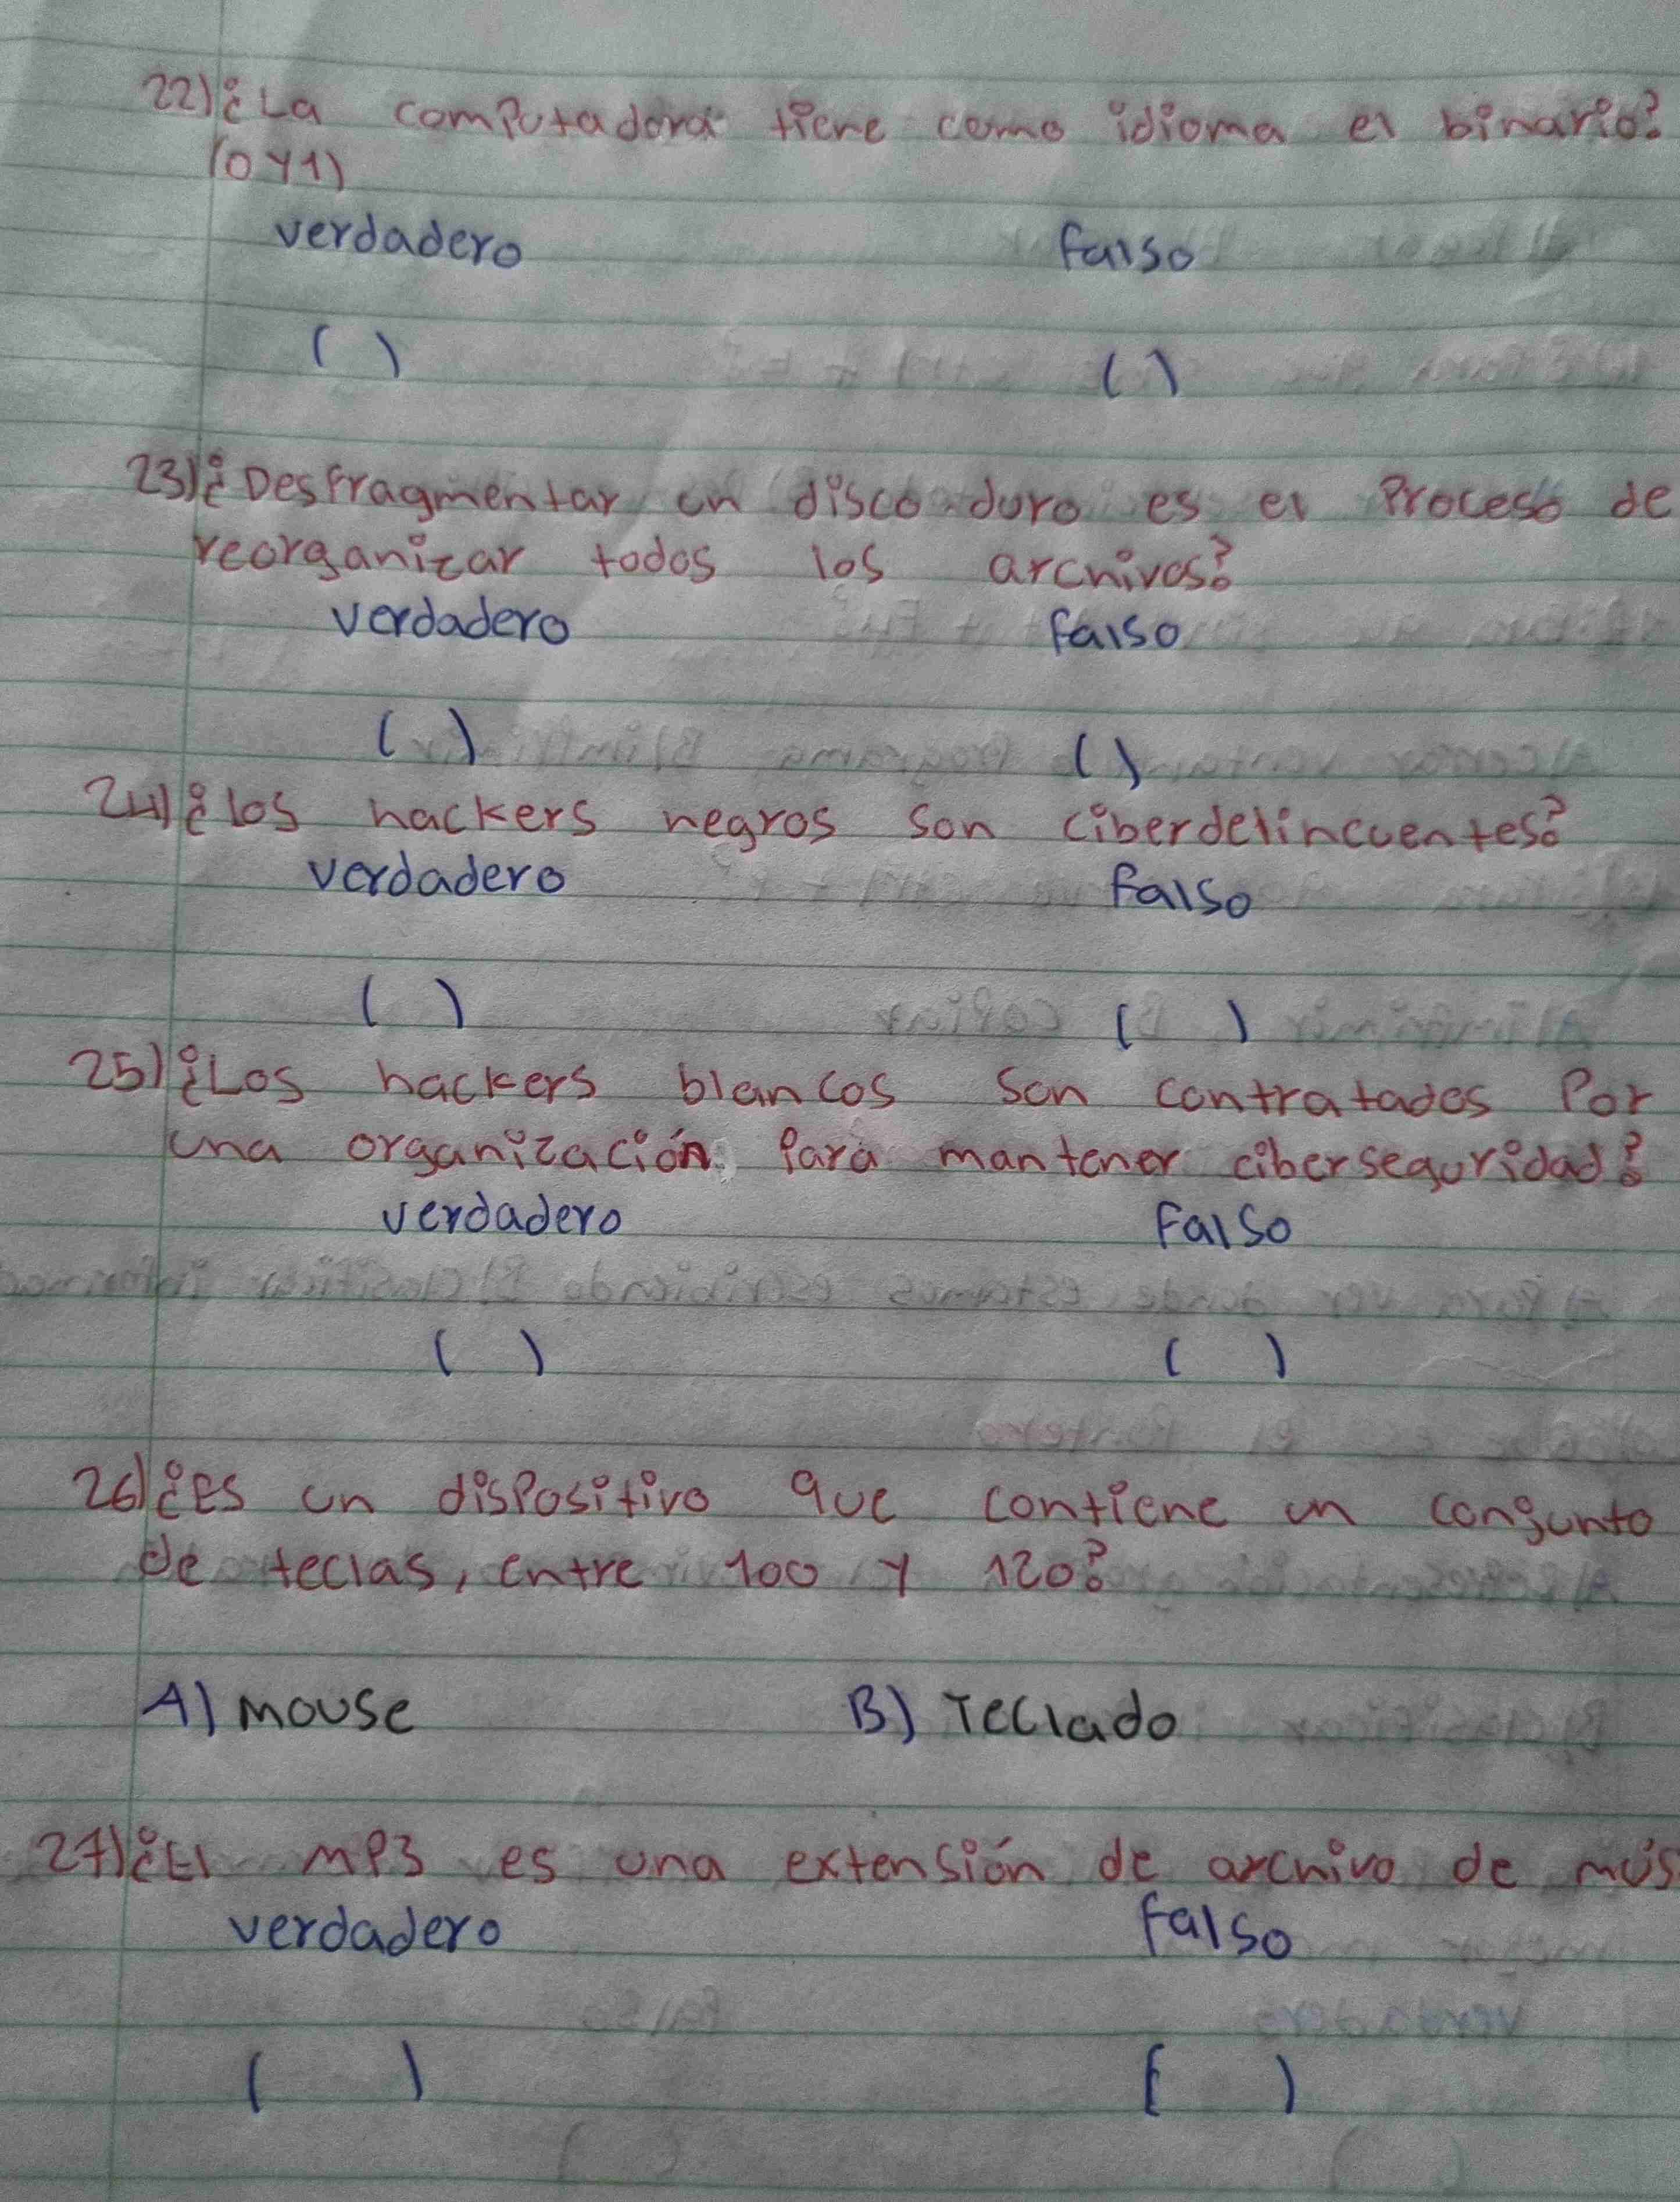 22) ¿La computadora tiene como idioma el binario?
(0 y 1)
verdadero falso
( ) ( )
23) ¿Desfragmentar un disco duro es el Proceso de
reorganizar todos los archivos?
verdadero falso
( ) ( )
24) ¿los hackers negros son ciberdelincuentes?
verdadero falso
( ) ( )
25) ¿Los hackers blancos son contratados Por
una organización Para mantener ciberseguridad?
verdadero Falso
( ) ( )
26) ¿Es un disPositivo que contiene un conjunto
de teclas, entre 100 y 120?
A) mouse B) Teclado
27) ¿El MP3 es una extensión de archivo de mús
verdadero Falso
( ) ( )